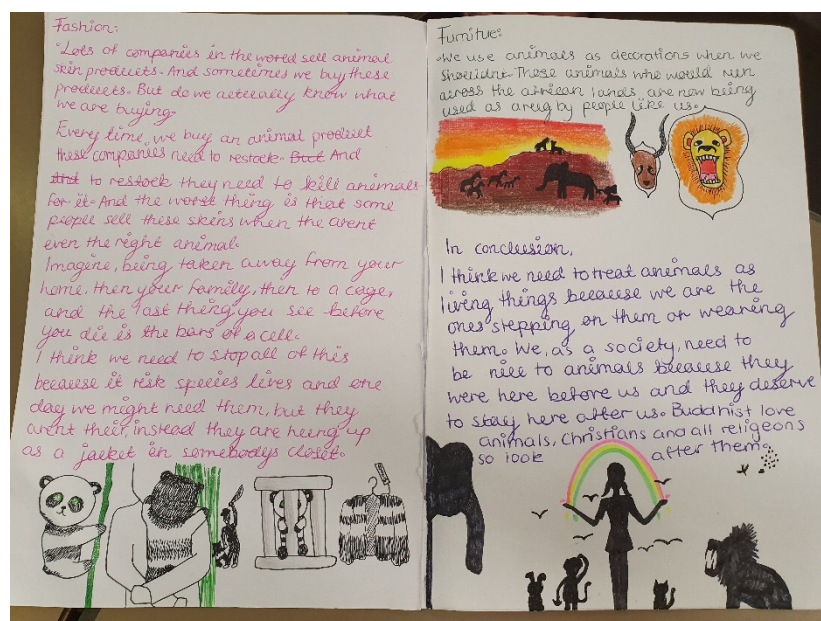 Fashion:
Lots of companies in the world sell animal
skin products. And sometimes we buy these
products. But do we actually know what
we are buying.
Every time, we buy an animal product
these companies need to restock. But And
And to restock they need to kill animals
for it. And the worst thing is that some
people sell these skins when the arent
even the right animal.
Imagine, being taken away from your
home, then your family, then to a cage,
and the last thing you see before
you die is the bars of a cell.
I think we need to stop all of this
because it risk species lives and one
day we might need them, but they
arent their, instead they are heing up
as a jacket in somebodys closet.
Furnitue:
We use animals as decorations when we
shouldnt. These animals who would run
across the african lands are now being
used as a rug by people like us.
In conclusion,
I think we need to treat animals as
living things because we are the
ones stepping on them or wearing
them. We, as a society, need to
be nice to animals because they
were here before us and they deserve
to stay here after us. Buddhist love
animals, Christians and all religeons
so look after them.